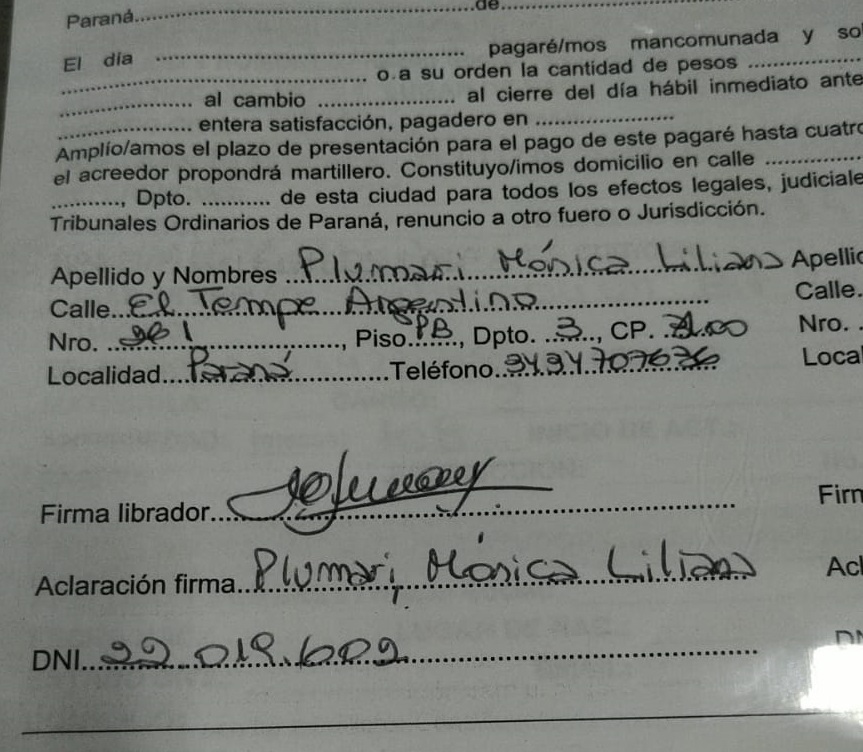 Paraná.......... de ..........
El día .......... pagaré/mos mancomunada y so
.......... o a su orden la cantidad de pesos ..........
.......... al cambio .......... al cierre del día hábil inmediato ante
.......... entera satisfacción, pagadero en ..........
Amplío/amos el plazo de presentación para el pago de este pagaré hasta cuatro
el acreedor propondrá martillero. Constituyo/imos domicilio en calle ..........
.........., Dpto. .......... de esta ciudad para todos los efectos legales, judiciale
Tribunales Ordinarios de Paraná, renuncio a otro fuero o Jurisdicción.
Apellido y Nombres Plumari Mónica Liliana Apellid
Calle El Tempe Argentino Calle.
Nro. 961, Piso PB, Dpto. 3, CP. Nro. .
Localidad Paraná Teléfono 3434707676 Loca
Firma librador Firm
Aclaración firma Plumari Mónica Liliana Acl
DNI 22.019.609 DN